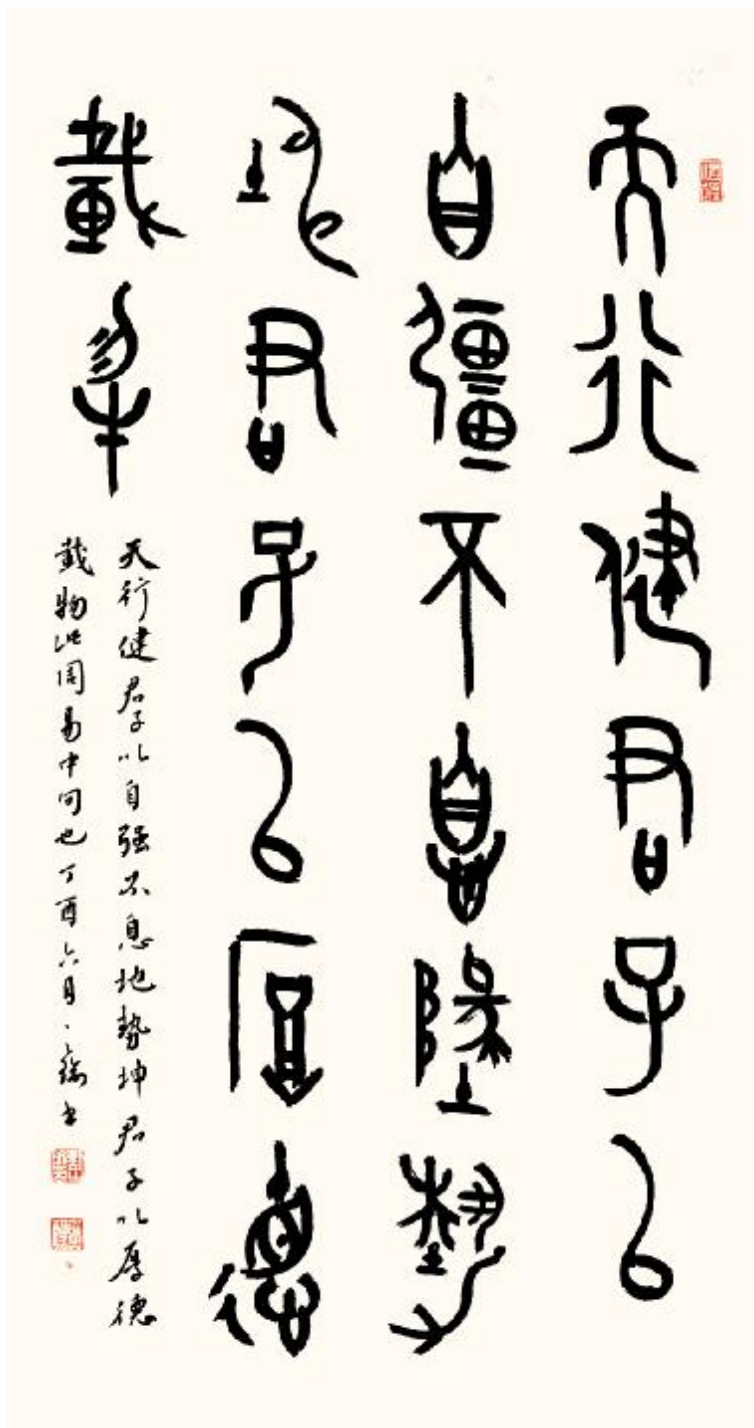 天行健君子以
自彊不息地埶
坤君子以厚德
載物
天行健君子以自强不息地势坤君子以厚德
載物此周易中句也丁酉六月